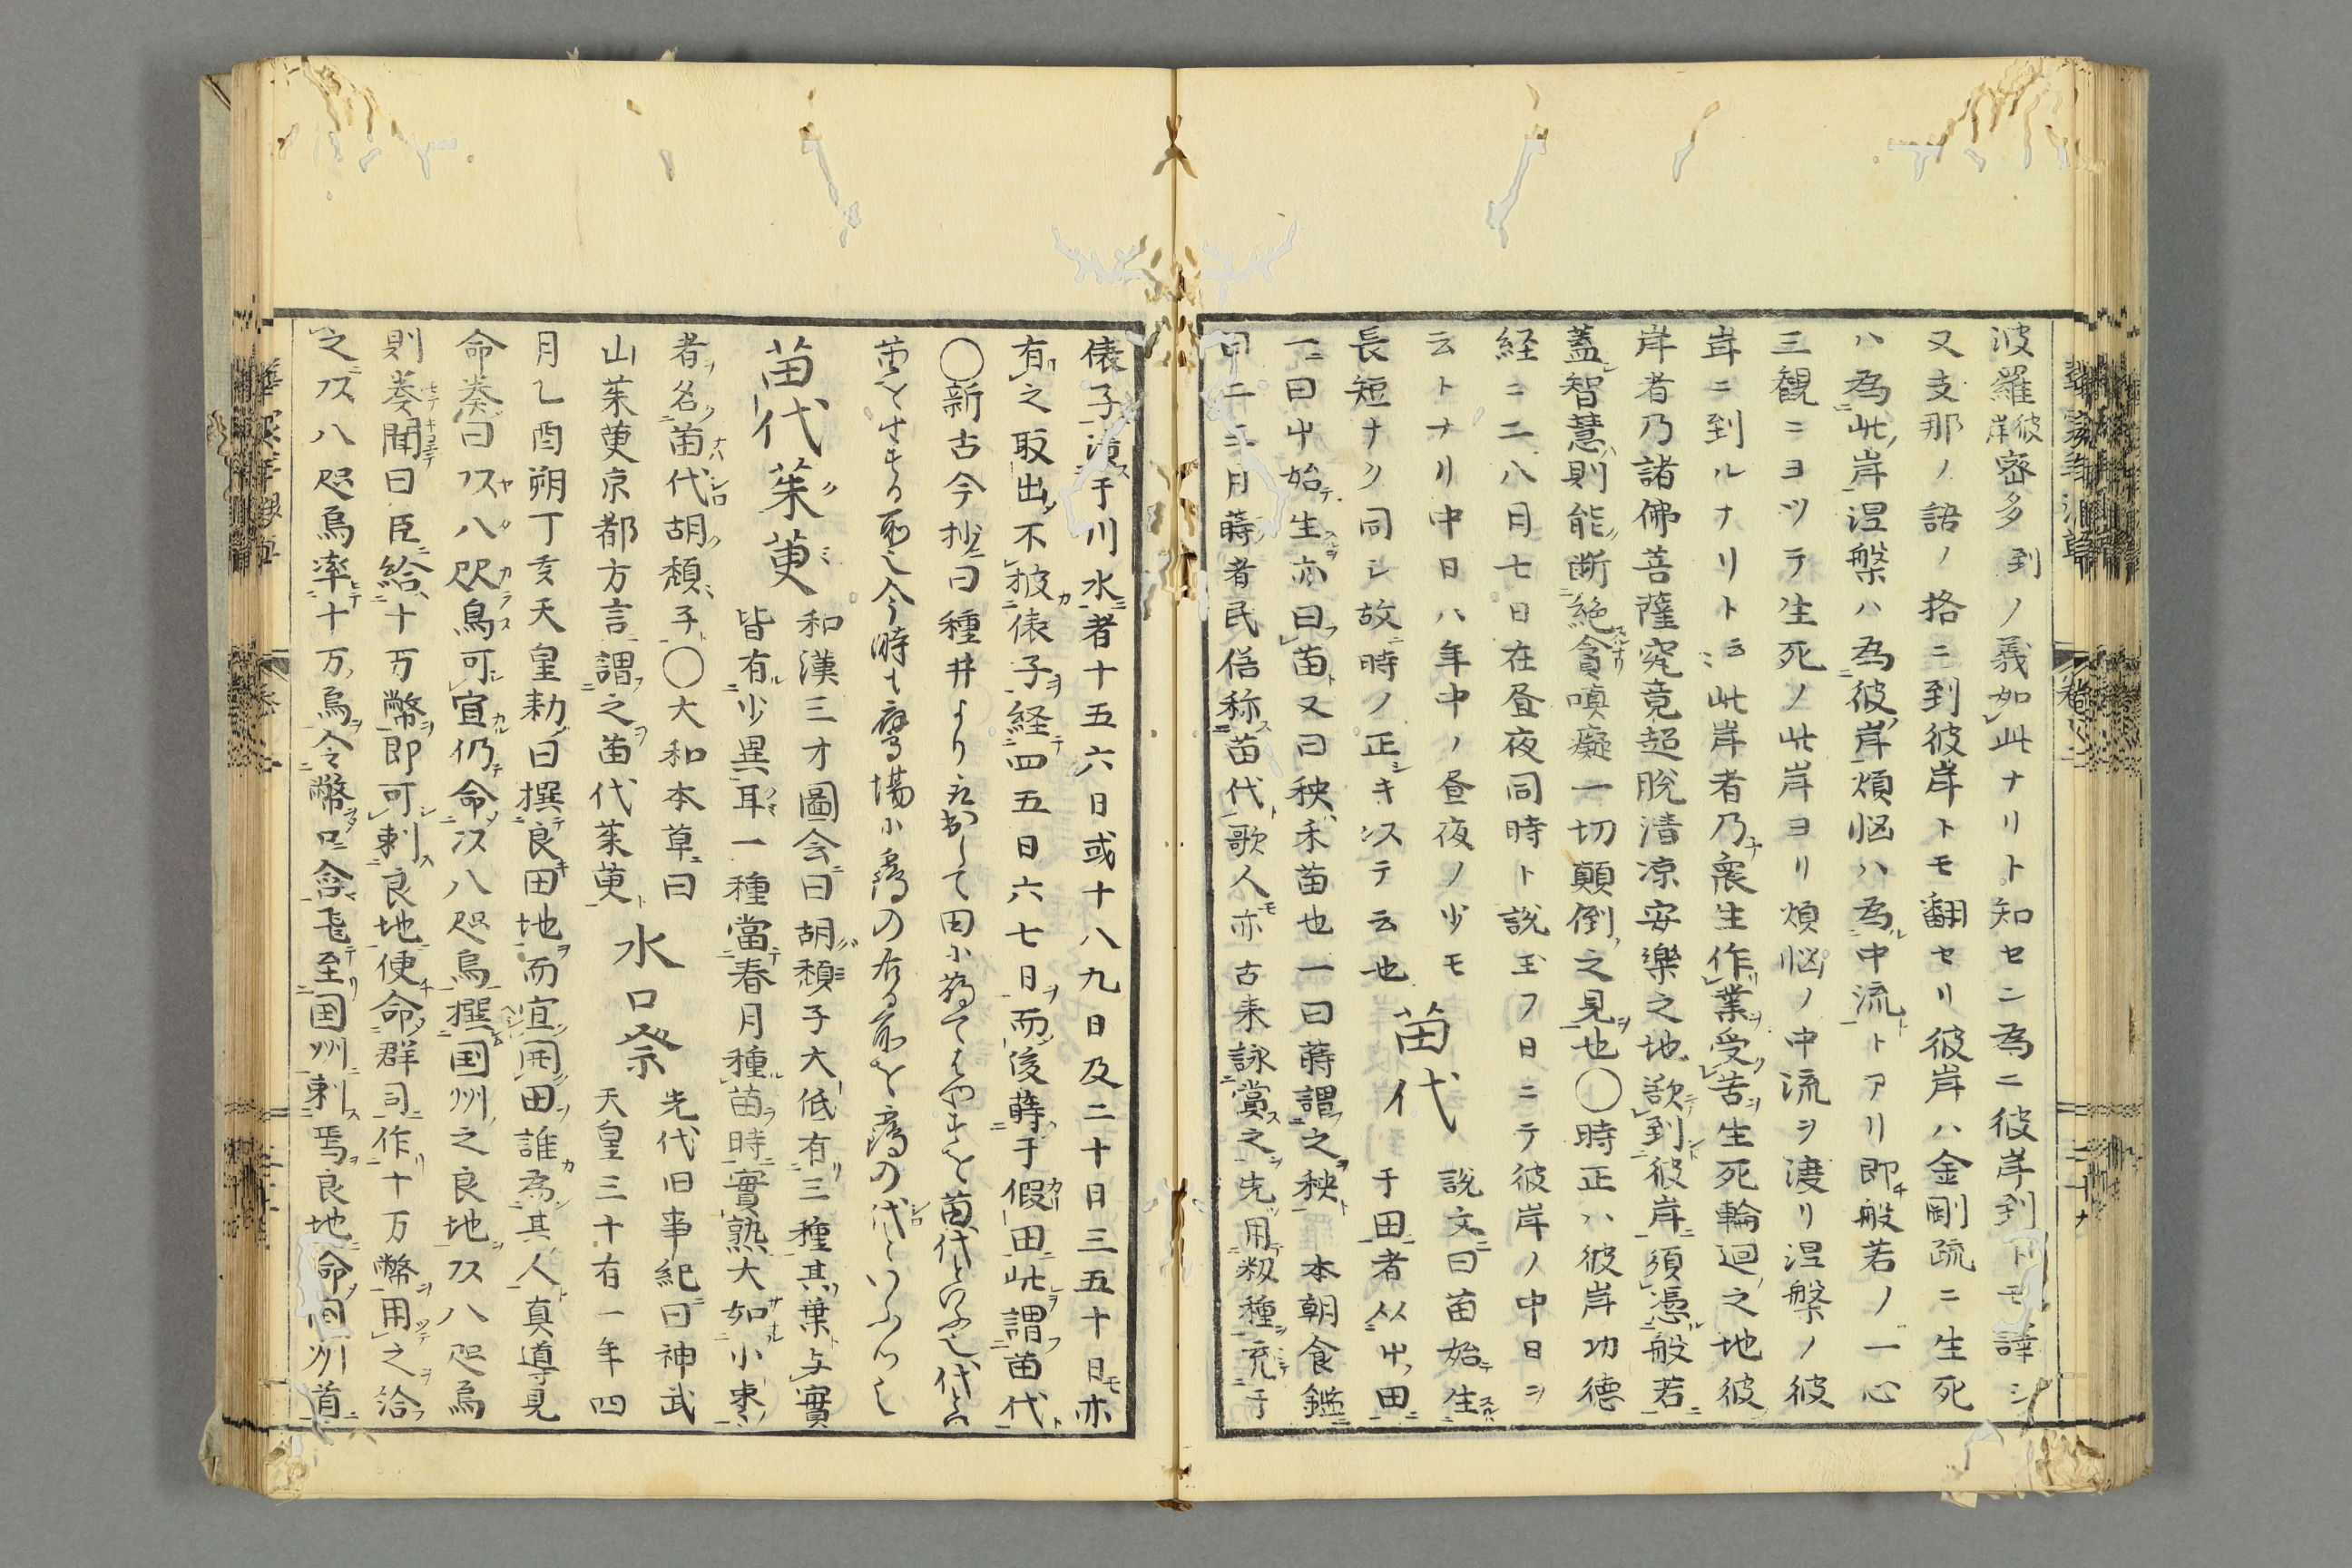 波羅彼岸密多到ノ義如此ナリト知セニ為ニ彼岸到トモ譯シ
又支那ノ語ノ格ニ到彼岸トモ翻セリ彼岸ハ金剛疏ニ生死
ハ為此岸涅槃ハ為彼岸煩悩ハ為中流トアリ即般若ノ一心
三観ニヨツテ生死ノ此岸ヨリ煩悩ノ中流ヲ渡リ涅槃ノ彼
岸ニ到ルナリト云此岸者乃衆生作業受苦生死輪迴之地彼
岸者乃諸佛菩薩究竟超脱清凉安樂之地欲到彼岸須憑般若
蓋智慧則能断絶貪嗔癡一切顛倒之見也〇時正ハ彼岸功德
経ニ二八月七日在昼夜同時ト說玉フ日ニテ彼岸ノ中日ヲ
云トナリ中日ハ年中ノ昼夜ノ少モ
長短ナク同シ故時ノ正キヲ以テ云也
苗代
說文曰苗始生
于田者从艸田
一曰艸始生亦曰苗又曰秧禾苗也一曰蒔謂之秧 本朝食鑑
曰二三月蒔者民俗称苗代歌人亦古来詠賞之先用籾種充于
俵子漬于川水者十五六日或十八九日及二十日三五十日亦
有之取出不披俵子経四五日六七日而後蒔于假田此謂苗代
〇新古今抄曰種井より取出して田に蒔て
苗代茱萸
和漢三才圖会曰胡頽子大低有三種其葉与實
皆有少異耳一種當春月種苗時實熟大如小棗
者名苗代胡頽子〇大和本草曰
山茱萸京都方言謂之苗代茱萸
水口祭
先代旧事紀曰神武
天皇三十有一年四
月乙酉朔丁亥天皇勅曰撰良田地而宜開田誰為其人真導見
命奏曰八咫烏可宜仍命八咫烏撰国州之良地八咫烏
則奏聞曰臣給十万幣即可刺良地使命群司作十万幣用之洽
之八咫烏率十万烏令幣口含飛至国州刺焉良地命国州首